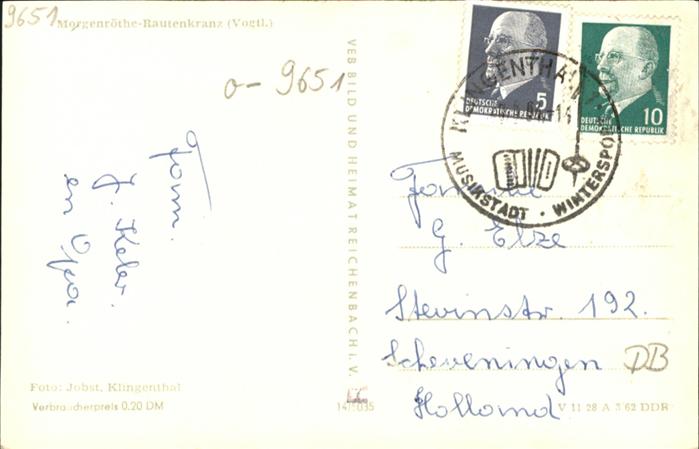 9651
Morgenröthe-Rautenkranz (Vogtl.)
0-9651
Fam.
J. Keler.
en Opa.
Foto: Jobst, Klingenthal
Verbraucherpreis 0.20 DM
VEB BILD UND HEIMAT REICHENBACH i. V.
5
DEUTSCHE
DEMOKRATISCHE REPUBLIK
10
DEUTSCHE
DEMOKRATISCHE REPUBLIK
KLINGENTHAL
MUSIKSTADT · WINTERSPO
Familie
G. Elze
Stevinstr. 192.
Scheveningen
DB
Holland
V 11 28 A 3/62 DDR